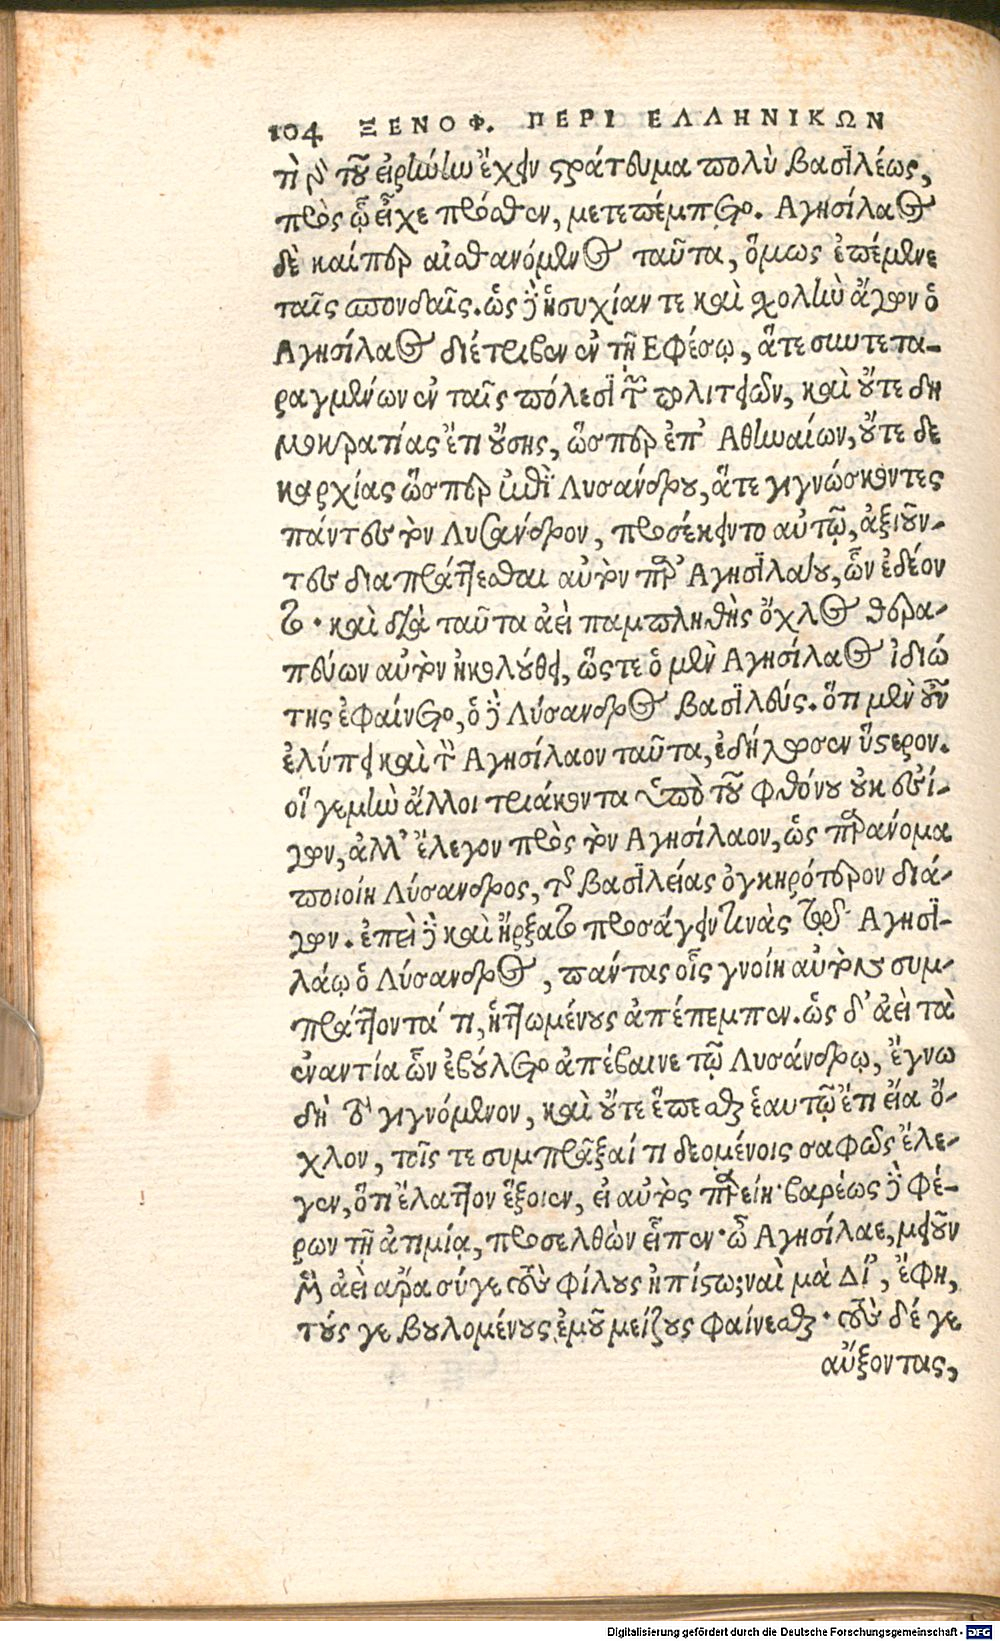 104 ΞΕΝΟΦ. ΠΕΡΙ ΕΛΛΗΝΙΚΩΝ
τὶ τοῦ εἰρήνην ἔχειν στράτευμα πολὺ βασιλέως,
πρὸς ᾧ εἶχε πρόσθεν, μετεπέμπετο. Αγησίλαος
δὲ καίπερ αἰσθανόμενος ταῦτα, ὅμως ἐπέμενε
ταῖς σπονδαῖς. ὡς δὲ ἡσυχίαν τε καὶ σχολὴν ἄγων ὁ
Αγησίλαος διέτριβεν ἐν τῇ Εφέσῳ, ἅτε συντετα-
ραγμένων ἐν ταῖς πόλεσι τῶν πολιτειῶν, καὶ οὔτε δη
μοκρατίας ἔτι οὔσης, ὥσπερ ἐπ' Αθηναίων, οὔτε δε
καρχίας ὥσπερ ἐπὶ Λυσάνδρου, ἅτε γιγνώσκοντες
πάντες τὸν Λύσανδρον, προσέκειντο αὐτῷ, ἀξιοῦν-
τες διαπράττεσθαι αὐτὸν παρ' Αγησιλάου, ὧν ἐδέον
το. καὶ διὰ ταῦτα ἀεὶ παμπληθὴς ὄχλος θερα-
πεύων αὐτὸν ἠκολούθει, ὥστε ὁ μὲν Αγησίλαος ἰδιώ
της ἐφαίνετο, ὁ δὲ Λύσανδρος βασιλεύς. ὅτι μὲν οὖν
ἐλύπει καὶ τὸν Αγησίλαον ταῦτα, ἐδήλωσεν ὕστερον.
οἵ γεμὴν ἄλλοι τριάκοντα ὑπὸ τοῦ φθόνου οὐκ ἐσί-
γων, ἀλλ' ἔλεγον πρὸς τὸν Αγησίλαον, ὡς παράνομα
ποιοίη Λύσανδρος, τῆς βασιλείας ὀγκηρότερον διά-
γων. ἐπεὶ δὲ καὶ ἤρξατο προσάγειν τινὰς τῷ Αγησι-
λάῳ ὁ Λύσανδρος, πάντας οἷς γνοίη αὐτὸν συμ-
πράττοντά τι, ἡττωμένους ἀπέπεμπεν. ὡς δ' ἀεὶ τὰ
ἐναντία ὧν ἐβούλετο ἀπέβαινε τῷ Λυσάνδρῳ, ἔγνω
δὴ τὸ γιγνόμενον, καὶ οὔτε ἕπεσθαι ἑαυτῷ ἔτι εἴα ὄ-
χλον, τοῖς τε συμπρᾶξαί τι δεομένοις σαφῶς ἔλε-
γεν, ὅτι ἔλαττον ἕξοιεν, εἰ αὐτὸς παρείη. βαρέως δὲ φέ-
ρων τῇ ἀτιμίᾳ, προσελθὼν εἶπεν. ὦ Αγησίλαε, μειοῦν
μὲν ἀεὶ ἄρα σύγε τοὺς φίλους ἠπίστω; ναὶ μὰ Δί', ἔφη,
τούς γε βουλομένους ἐμοῦ μείζους φαίνεσθαι. τοὺς δέ γε
αὔξοντας,
Digitalisierung gefördert durch die Deutsche Forschungsgemeinschaft - DFG